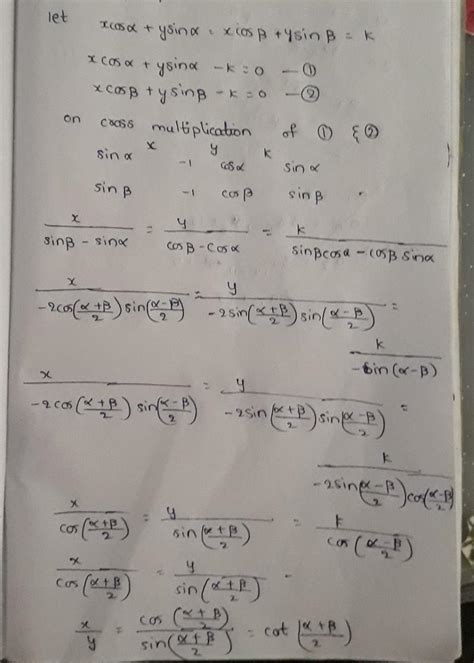 let
xcosα + ysinα = xcosβ + ysinβ = k
xcosα + ysinα - k = 0 — ①
xcosβ + ysinβ - k = 0 — ②
on cross multiplication of ① & ②
x y k
sinα -1 cosα sinα
sinβ -1 cosβ sinβ
x/(sinβ - sinα) = y/(cosβ - cosα) = k/(sinβcosα - cosβ sinα)
x/(-2cos((α+β)/2) sin((α-β)/2)) = y/(-2sin((α+β)/2) sin((α-β)/2)) =
k/(-sin(α-β))
x/(-2cos((α+β)/2) sin((α-β)/2)) = y/(-2sin((α+β)/2) sin((α-β)/2)) =
k/(-2sin((α-β)/2) cos((α-β)/2))
x/cos((α+β)/2) = y/sin((α+β)/2) = k/cos((α-β)/2)
x/cos((α+β)/2) = y/sin((α+β)/2)
x/y = cos((α+β)/2)/sin((α+β)/2) = cot((α+β)/2)